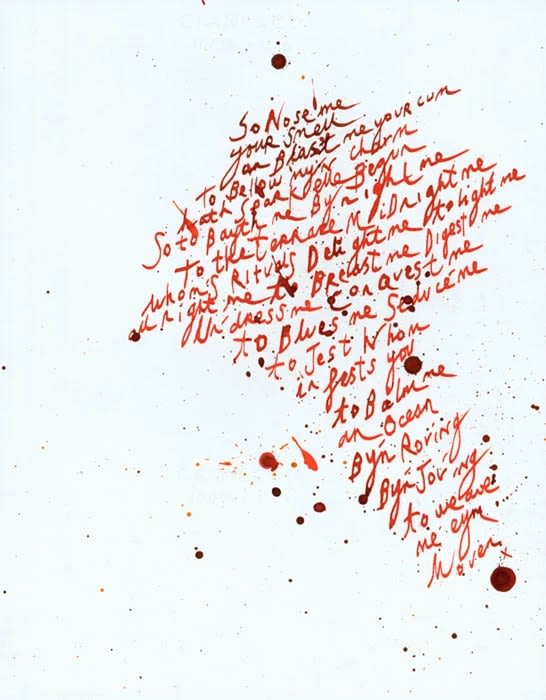 So Nose me
your smell
an Blast me your cum
to Bellow myn charm
hath Spark elle Begun
So to Bayth me By night me
to the terrace Midnight me
whom's Rituals Delight me to light me
all right me to Breast me Digest me
Undress me Conquest me
to Blues me Seduce me
to Jest Whom
in fests you
to Balm me
an Ocean
By'n Roving
By'n Joving
to weave
me eym
Woven x